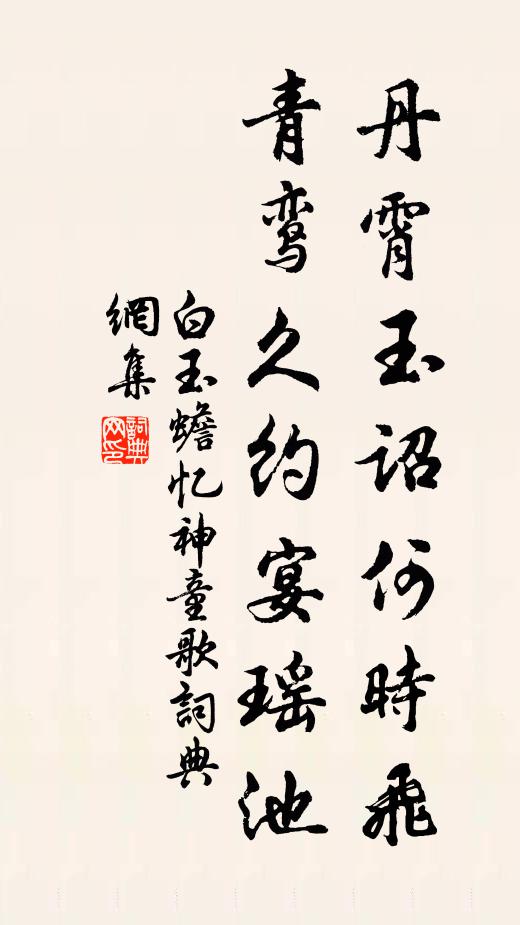 丹霄玉詔何時飛
青鸾久約宴瑶池
白玉蟾忆神童歌詞典
網集
詞典网印